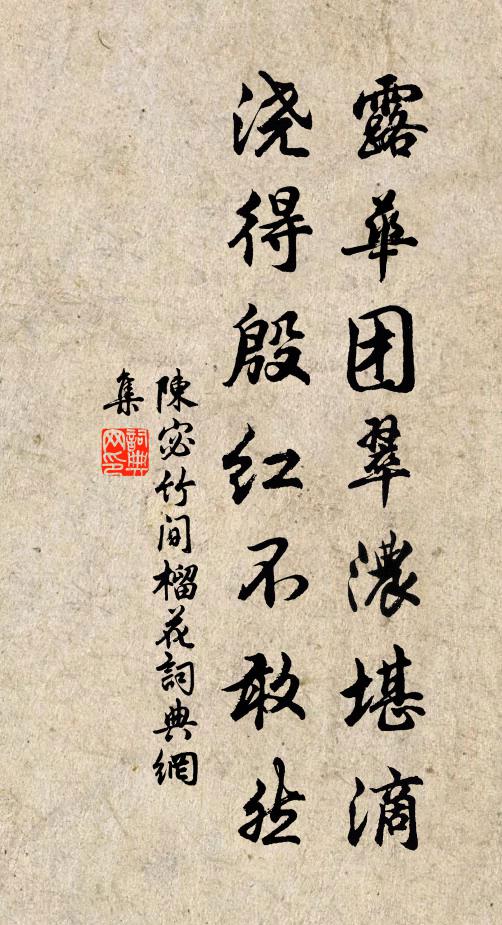 露華团翠濃堪滴
浇得殷红不敢然
陳宓竹间榴花詞典網
集
詞典
网印